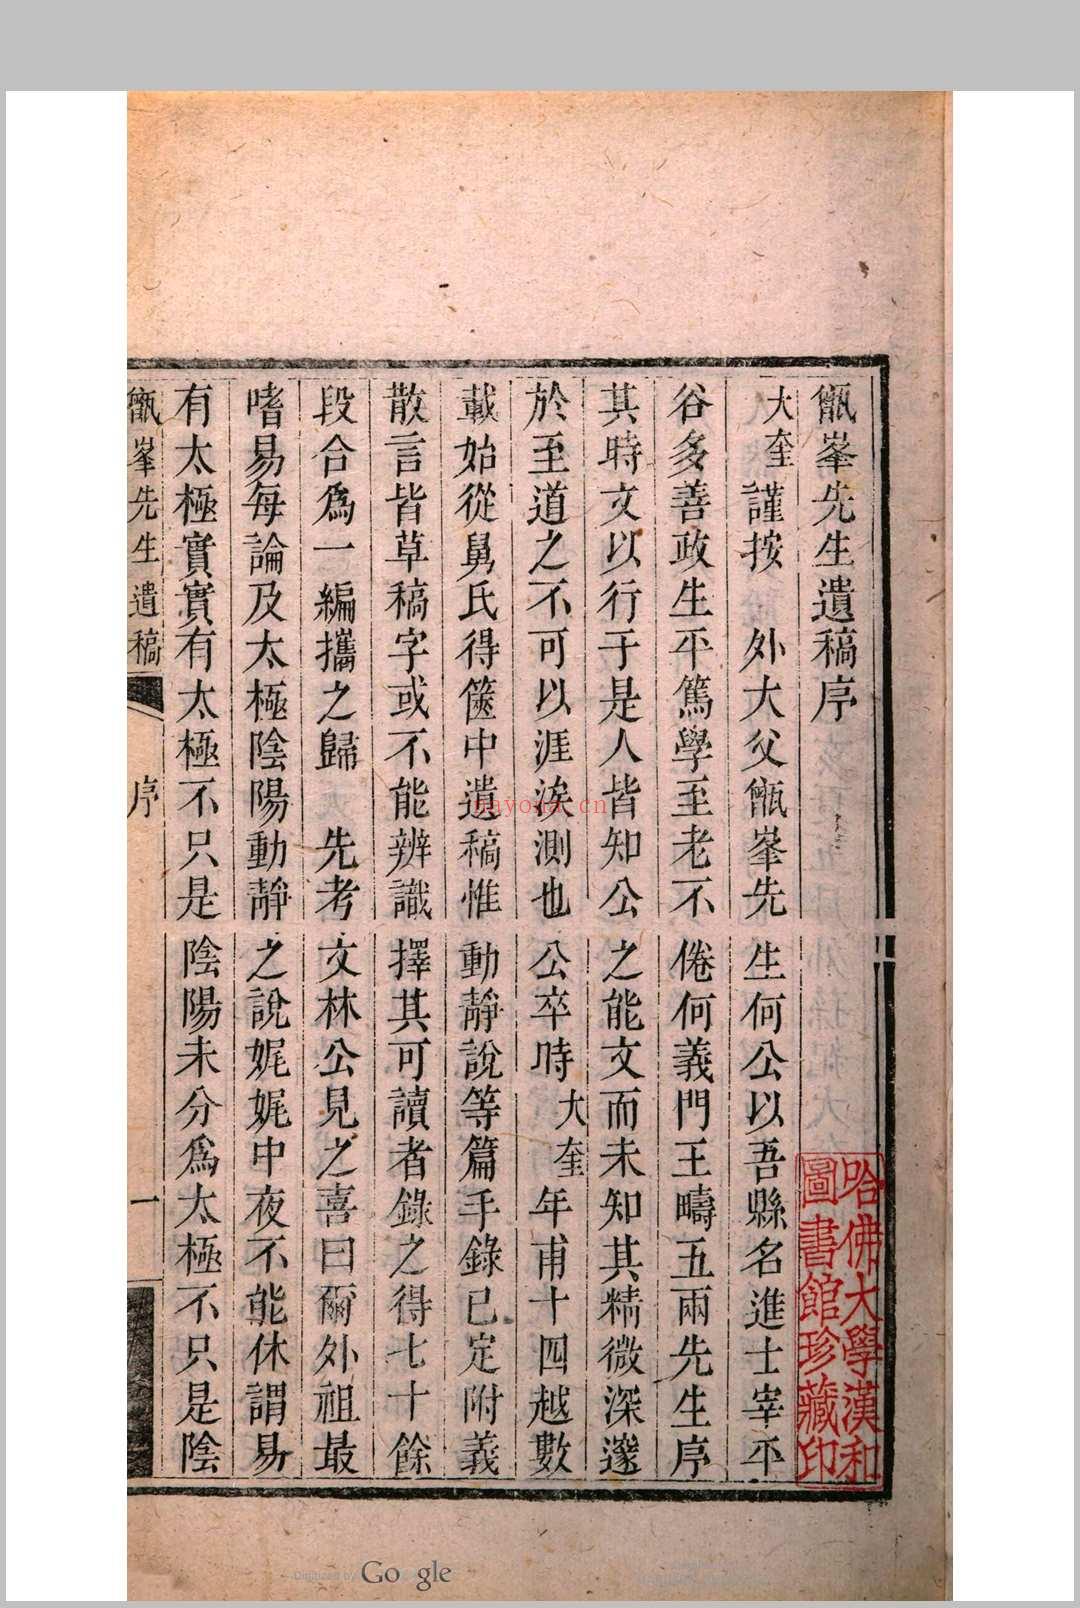 甑峯先生遺稿序
大奎謹按　外大父甑峯先生何公以吾縣名進士宰平
谷多善政生平篤學至老不倦何義門王疇五兩先生序
其時文以行于是人皆知公之能文而未知其精微深邃
於至道之不可以涯涘測也公卒時大奎年甫十四越數
載始從舅氏得篋中遺稿惟動靜說等篇手錄已定附義
散言皆草稿字或不能辨識擇其可讀者錄之得七十餘
段合爲一編攜之歸　先考文林公見之喜曰爾外祖最
嗜易每論及太極陰陽動靜之說娓娓中夜不能休謂易
有太極實實有太極不只是陰陽未分爲太極不只是陰
甑峯先生遺稿　序　一
哈佛大學漢和
圖書館珍藏印
nayona.cn
Digitized by Google